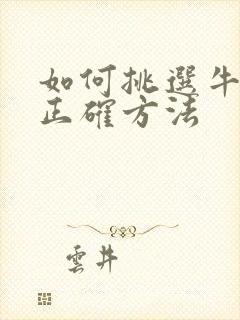 如何挑選牛
正確方法
雲井